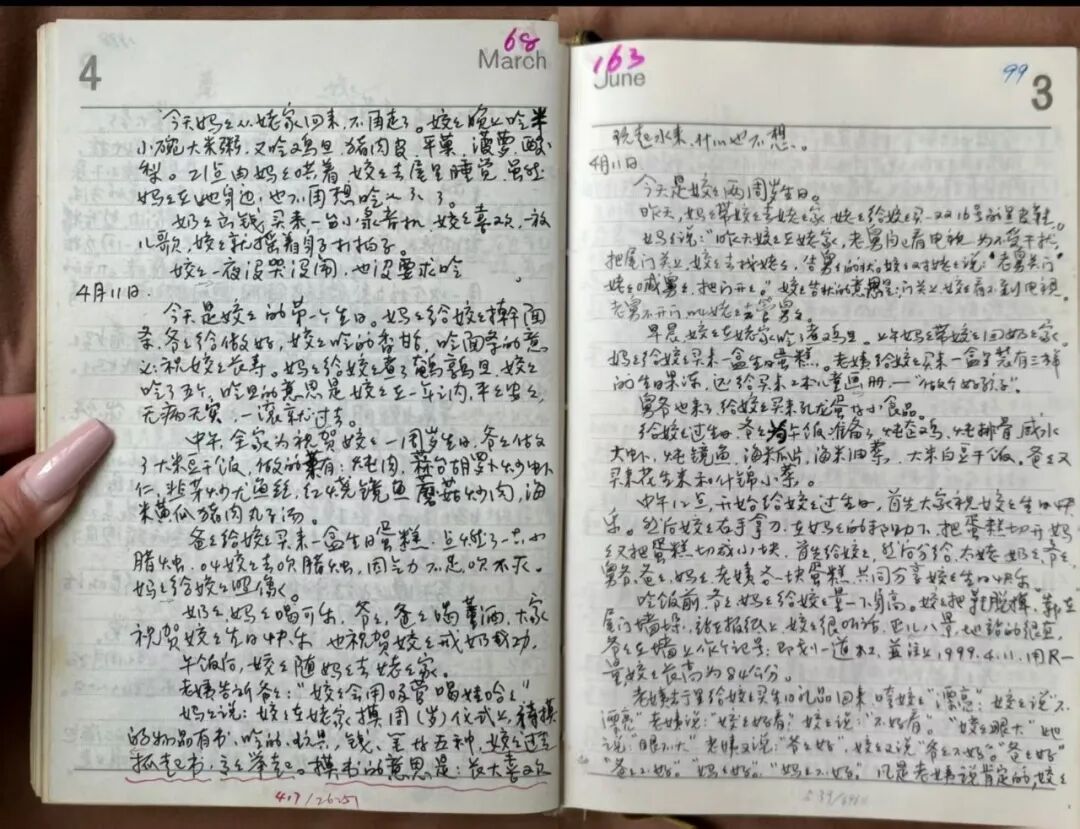 4
68
March
今天妈妈从姥家回来,不再走了。姣姣晚上吃半
小碗大米粥,又吃鸡旦、猪肉皮、苹菓、菠萝、酸
梨。21点由妈妈哄着,姣姣去屋里睡觉,虽然
妈妈在她身边,也不再想吃
奶奶出钱买来一台小录音机,姣姣喜欢,放
儿歌,姣姣就摇着身子打拍子。
姣姣一夜没哭没闹,也没要求吃
4月11日.
今天是姣姣的第一个生日。妈妈给姣姣擀面
条,爷爷给做好,姣姣吃的香甜,吃面条的意
义:祝姣姣长寿。妈妈给姣姣煮了鹌鹑旦,姣姣
吃了五个,吃旦的意思是姣姣在一年之内,平平安安,
无病无灾,一滚就过去。
中午,全家为祝贺姣姣一周岁生日,爷爷做
了大米豆干饭,做的菜有:炖肉,蒜台胡萝卜炒虾
仁,韭芽炒尤鱼丝,红烧镜鱼,蘑菇炒肉,海
米黄瓜猪肉丸子汤。
爸爸给姣姣买来一盒生日蛋糕,点燃了一支小
腊烛,叫姣姣去吹腊烛,因气力不足吹不灭。
妈妈给姣姣照像。
奶奶、妈妈喝可乐,爷爷、爸爸喝薯酒,大家
祝贺姣姣生日快乐,也祝贺姣姣戒奶成功。
午饭后,姣姣随妈妈去姥姥家。
老姨告诉爷爷:“姣姣会用吸管喝娃哈哈”
妈妈说:姣姣在姥家摸周(岁)仪式上,被摸
的物品有书、吃的、玩具、钱、笔等五种,姣姣过去
抓起书,高高举起。摸书的意思是:长大喜欢
407/2625
163
June
99
3
玩起水来,什么也不想。
4月11日.
今天是姣姣两周岁生日。
昨天,妈妈带姣姣去姥姥家,姥姥给姣姣买一双16号的皮鞋
妈妈说:“昨天姣姣在姥家,老舅自己看电视,为不受干扰,
把屋门关上,姣姣去找姥姥,告舅舅的状。姣姣对姥姥说:“老舅关门
姥姥喊舅舅,把门开开。”姣姣告状的意思是:门关上,姣姣看不到电视。
老舅不开门叫姥姥去管舅舅。
早晨,姣姣在姥家吃了煮鸡旦。上午妈妈带姣姣回奶奶家。
妈妈给姣姣买来一盒生日蛋糕。老姨给姣姣买来一盒装有三样
的生日果冻,还给买来2本儿童画册,一“做个好孩子”
舅爷也来了给姣姣买来乳龙蛋等小食品。
给姣姣过生日,爷爷为午饭准备了炖笨鸡,炖排骨,咸水
大虾,炖镜鱼,海米瓜片,海米油菜,大米白豆干饭。爸爸又
买来花生米和什锦小菜。
中午12点,开始给姣姣过生日,首先大家祝姣姣生日快
乐。然后姣姣右手拿刀,在妈妈的帮助下,把蛋糕切开。妈
妈又把蛋糕切成小块,首先给姣姣,然后分给太姥、奶奶、爷爷、
舅爷、爸爸、妈妈、老姨各一块蛋糕,共同分享姣姣生日快乐。
吃饭前,爷爷、妈妈给姣姣量一下身高。姣姣把鞋脱掉,靠在
屋门墙垛,站在报纸上,姣姣很听话,正儿八景地站的很直,
爷爷在墙上做个记号:即划一道杠,并注上1999.4.11.用尺一
量,姣姣长高为84公分。
老姨去于里给姣姣买生日礼品回来,夸姣姣“漂亮”,姣姣说“不
漂亮”老姨说:“姣姣好看”,姣姣说:“不好看”。“姣姣眼大”她
说“眼不大”老姨又说:“爷爷好”,姣姣又说“爷爷不好”。“爸爸好”
“爸爸不好”。“妈妈好”,“妈妈不好”。凡是老姨说肯定的,姣姣